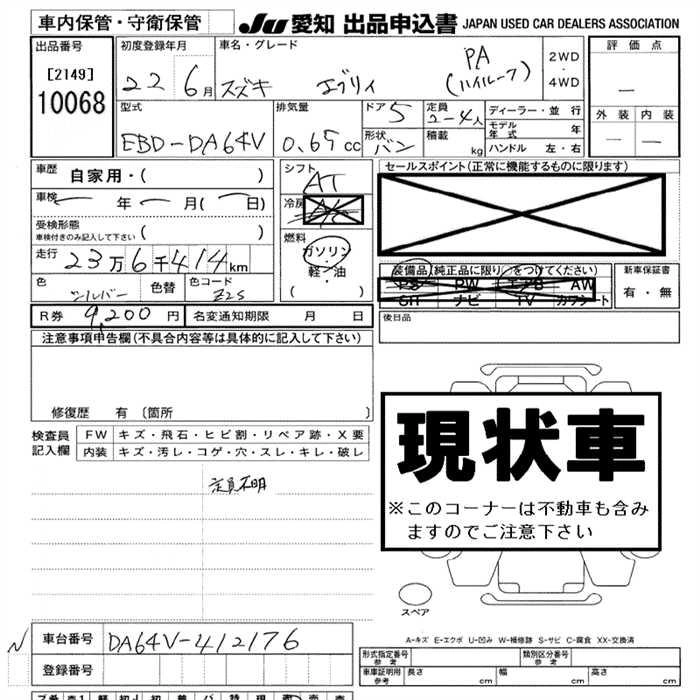 車内保管・守衛保管
JU 愛知 出品申込書 JAPAN USED CAR DEALERS ASSOCIATION
出品番号
[2149]
10068
初度登録年月
22 6月
車名・グレード
スズキ エブリィ PA (ハイルーフ)
2WD
・
4WD
評価点
—
外装 内装
— —
型式
EBD-DA64V
排気量
0.65cc
ドア 5
形状 バン
定員 2-4人
積載 kg
ディーラー・並行
モデル年式 年
ハンドル 左・右
車歴 自家用・( )
車検 — 年 — 月 (— 日)
受検形態
車検付きのみ記入して下さい ( )
走行 23万6千414km
色 シルバー 色替 色コード Z2S
シフト AT
冷房 A/C
燃料
ガソリン
・
軽・油
( )
セールスポイント(正常に機能するものに限ります)
装備品(純正品に限り○をつけてください)
PS PW エアB AW
SR ナビ TV カワシート
新車保証書
有・無
R券 9,200円 名変通知期限 月 日
後日品
注意事項申告欄(不具合内容等は具体的に記入して下さい)
修復歴 有 〔箇所 〕
検査員記入欄
FW キズ・飛石・ヒビ割・リペア跡・X要
内装 キズ・汚レ・コゲ・穴・スレ・キレ・破レ
定員不明
現状車
※このコーナーは不動車も含み
ますのでご注意下さい
スペア
A-キズ E-エクボ U-凹み W-補修跡 S-サビ C-腐食 XX-交換済
N 車台番号 DA64V-412176
登録番号
形式指定番号 参考 類別区分番号 参考
車庫証明用 参考 長さ cm 幅 cm 高さ cm